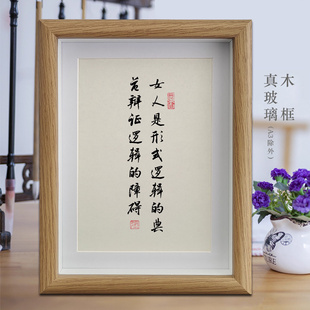 女人是形式逻辑的典
范辩证逻辑的障碍
木框
真玻璃
(A3除外)